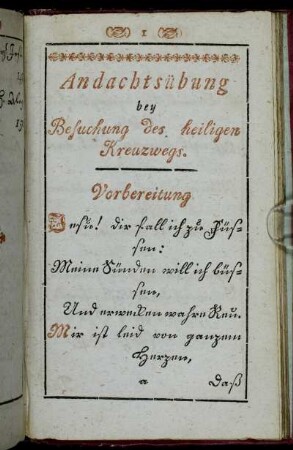 1
Andachtsübung
bey
Besuchung des heiligen
Kreuzwegs.
Vorbereitung
Jesu! dir fall ich zu Füs-
sen:
Meine Sünden will ich büs-
sen,
Und erwecken wahre Reu.
Mir ist leid von ganzem
Herzen,
a Daß